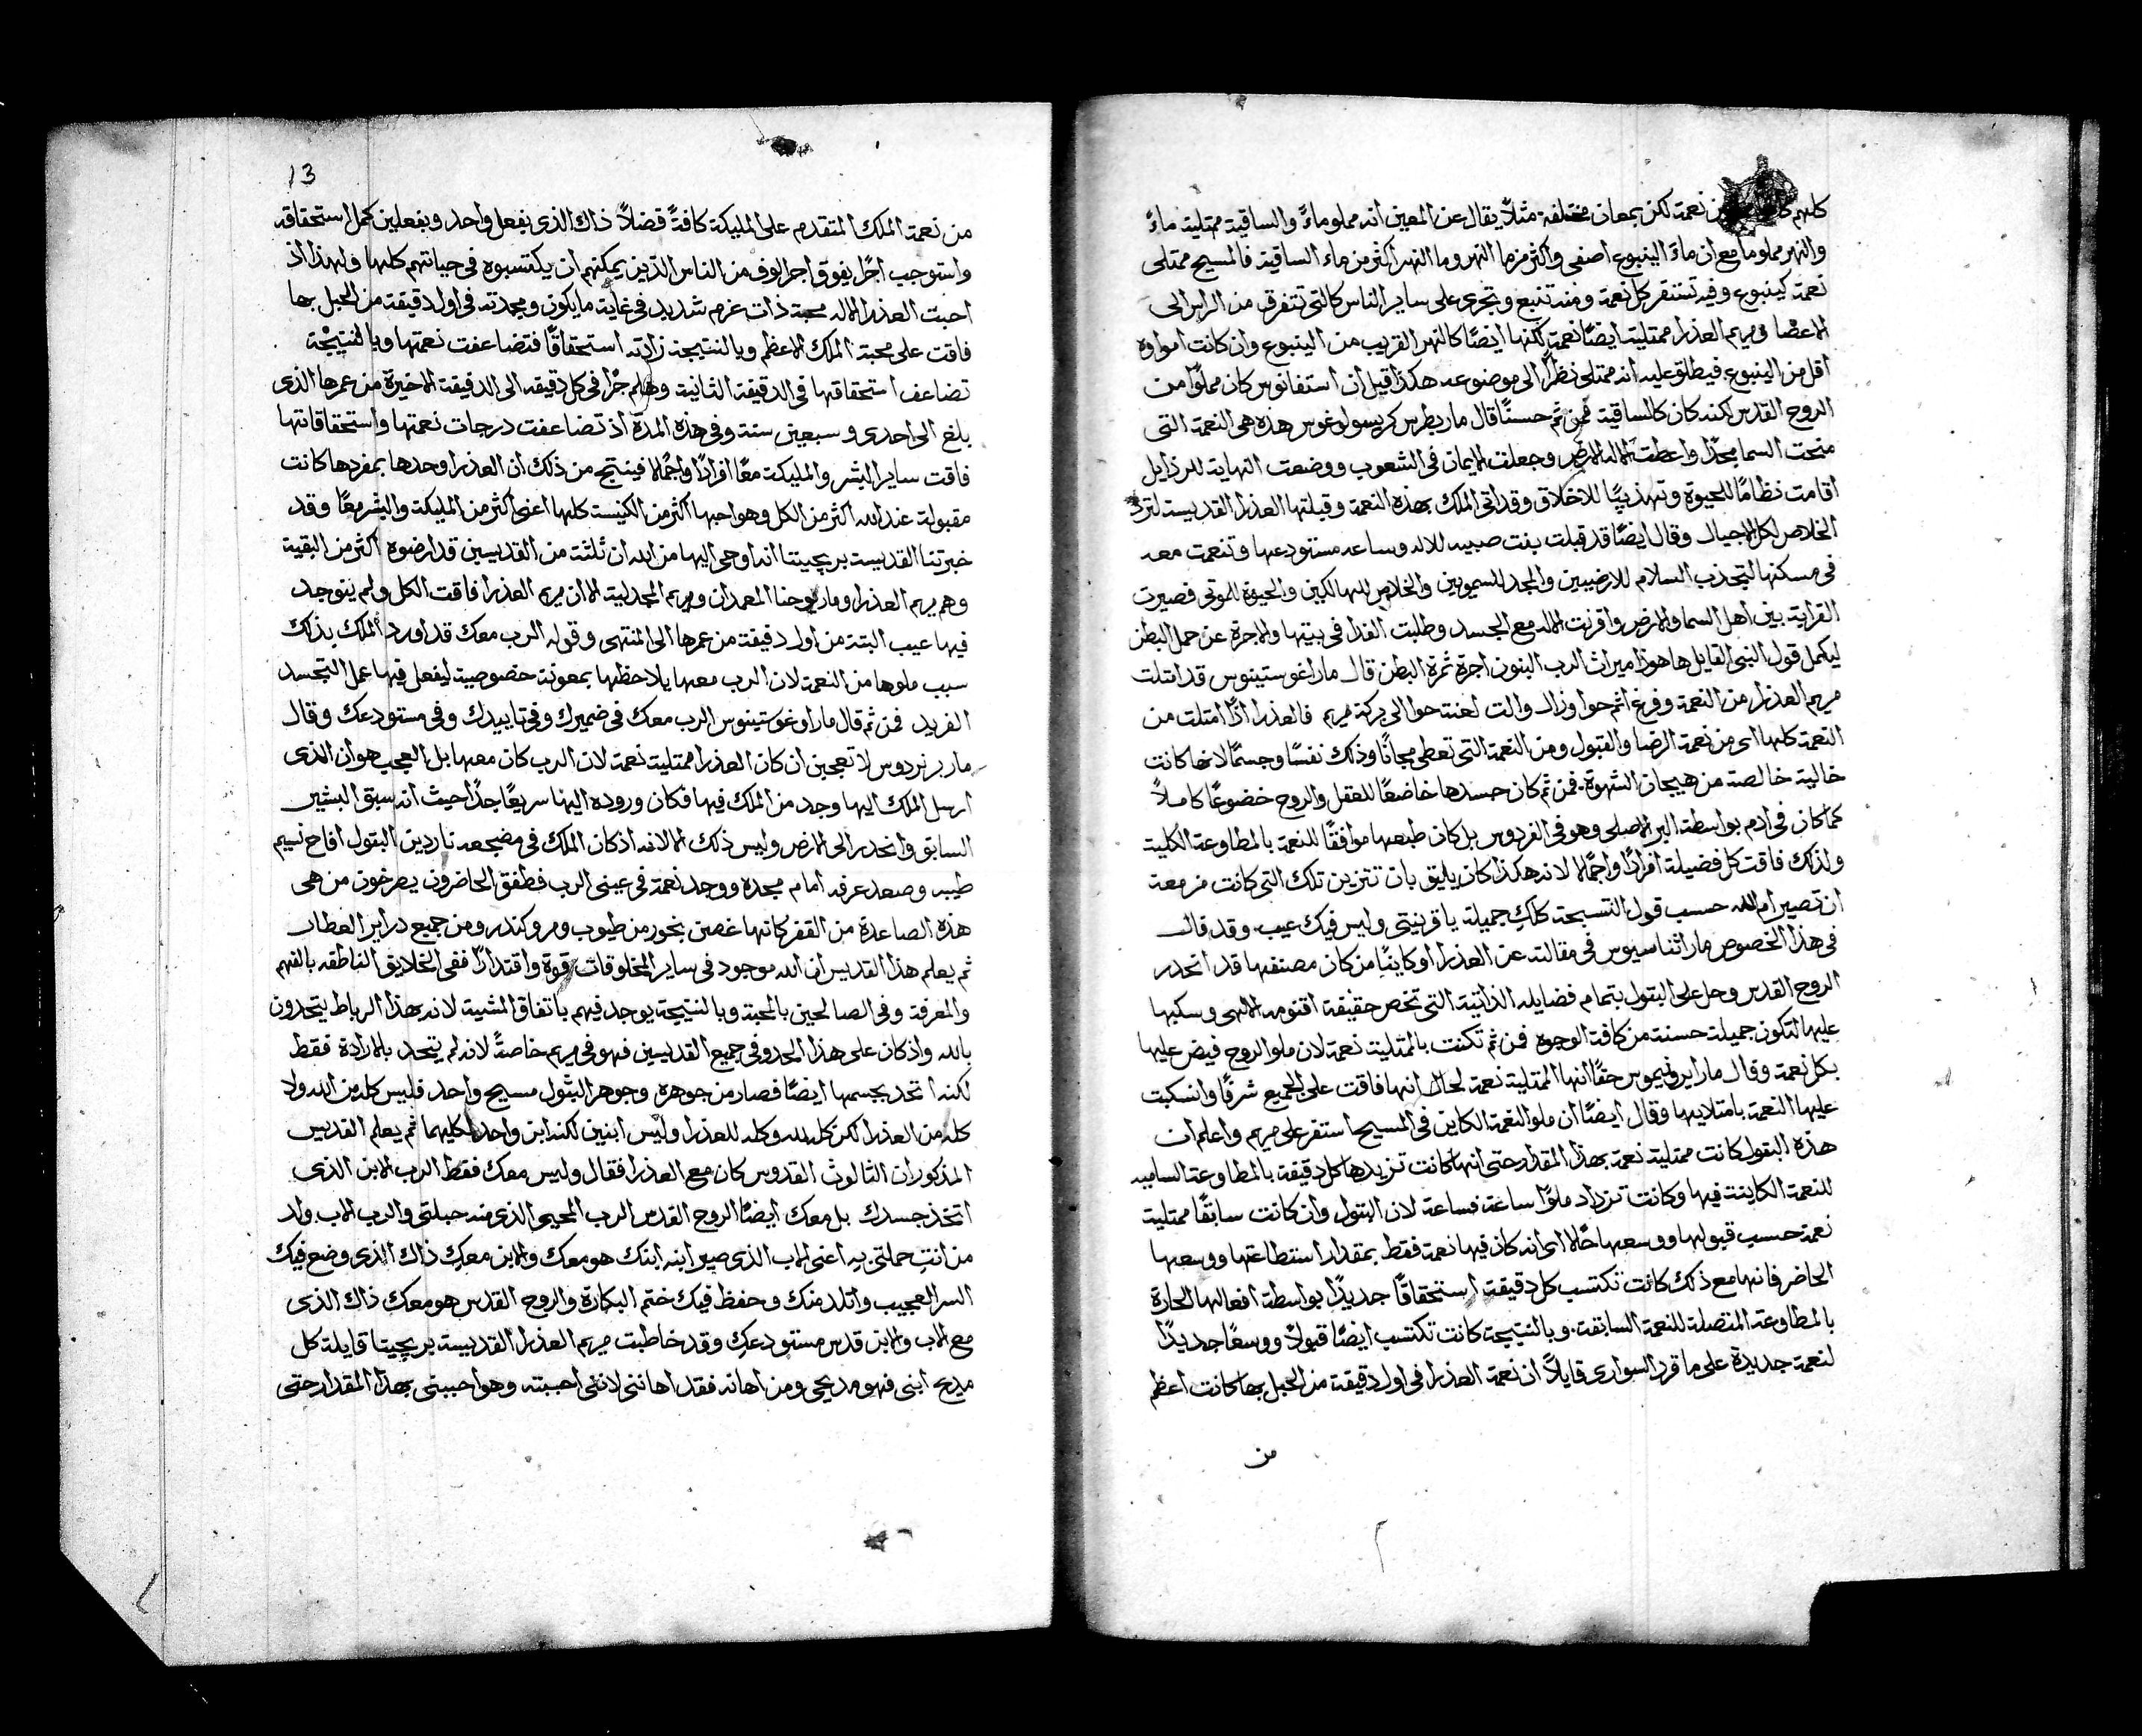 كلهم نعمة لكن بمعان مختلفه مثلاً يقال عن المعين انه مملو ماءً والساقية ممتلية ماءً
والنهر مملو ما مع ان ماء الينبوع اصفى واكثر من ما النهر وما النهر اكثر من ماء الساقية فالمسيح ممتلى
نعمة كينبوع وفيه تستقر كل نعمة ومنه تنبع وتجرى على ساير الناس كالتى تتفرق من الراس الى
الاعضا ومريم العذرا ممتلية ايضًا نعمة لكنها ايضًا كالنهر القريب من الينبوع وان كانت امواوه
اقل من الينبوع فيطلق عليه انه ممتلى نظرًا الى موضوعه هكذا قيل ان استفانوس كان مملوًا من
الروح القدس لكنه كان كالساقية فمن ثم حسنًا قال مار بطرس كريسولوغوس هذه هى النعمة التى
منحت السما مجدًا واعطت الاله الارض وجعلت الايمان فى الشعوب ووضعت النهاية للرذايل
اقامت نظامًا للحيوة وتهذيبًا للاخلاق وقد اتى الملك بهذه النعمة وقبلتها العذرا القديسة لترد
الخلاص لكل الاجيال وقال ايضًا قد قبلت بنت صبيه للاله وساعه مستودعها وتنعمت معه
فى مسكنها لتجذب السلام للارضيين والمجد للسمويين والخلاص للهالكين والحيوة للموتى فصيرت
القرابة بين اهل السما والارض واقرنت الاله مع الجسد وطلبت الفدا فى بيتها والاجرة عن حمل البطن
ليكمل قول النبى القايل ها هوذا ميراث الرب البنون اجرة ثمرة البطن قال مار اغوستينوس قد امتلت
مريم العذرا من النعمة وفرغ اثم حوا وزال والت لعنت حوا الى بركة مريم فالعذرا اذًا امتلت من
النعمة كلها اى من نعمة الرضا والقبول ومن النعمة التى تعطى مجانًا وذلك نفسًا وجسمًا لانها كانت
خالية خالصة من هيجان الشهوة. فمن ثم كان جسدها خاضعًا للعقل والروح خضوعًا كاملاً
كما كان فى ادم بواسطة البر الاصلى وهو فى الفردوس بل كان طبعها موافقًا للنعمة بالمطاوعة الكلية
ولذلك فاقت كل فضيلة افرادًا واجمالا لانه هكذا كان يليق بان تتزين تلك التى كانت مزمعة
ان تصير ام الله حسب قول التسبحة كلكِ جميلة يا قرينتى وليس فيك عيب وقد قال
فى هذا الخصوص مار اثناسيوس فى مقالته عن العذرا او كاينًا من كان مصنفها قد انحدر
الروح القدس وحل على البتول بتمام فضايله الذاتية التى تخص حقيقة اقنومه الالهى وسكبها
عليها لتكون جميلة حسنة من كافة الوجوه فمن ثم تكنت بالمتلية نعمة لان ملو الروح فيض عليها
بكل نعمة وقال مار ايرونيموس حقًا انها الممتلية نعمة لحال انها فاقت على الجميع شرفًا وانسكبت
عليها النعمة بامتلايها وقال ايضًا ان ملو النعمة الكاين فى المسيح استقر على مريم واعلم ان
هذه البتول كانت ممتلية نعمة بهذا المقدار حتى انها كانت تزيدها كل دقيقة بالمطاوعة الساميه
للنعمة الكاينة فيها وكانت تزداد ملوًا ساعة فساعة لان البتول وان كانت سابقًا ممتلية
نعمة حسب قبولها ووسعها حالا اى انه كان فيها نعمة فقط بمقدار استطاعتها ووسعها
الحاضر فانها مع ذلك كانت تكتسب كل دقيقة استحقاقًا جديدًا بواسطة افعالها الحارة
بالمطاوعة المتصلة للنعمة السابقة. وبالنتيجة كانت تكتسب ايضًا قبولاً ووسعًا جديدًا
لنعمة جديدة على ما قرر السوارى قايلاً ان نعمة العذرا فى اول دقيقة من الحبل بها كانت اعظم
من
13
من نعمة الملك المتقدم على المليكة كافةً فضلاً ذاك الذى بفعل واحد وبفعلين كمل استحقاقه
واستوجب اجرًا يفوق اجر الوف من الناس الذين يمكنهم ان يكتسبوه فى حياتهم كلها ولهذا اذ
احبت العذرا الاله محبة ذات عزم شديد فى غاية ما يكون ومجدته فى اول دقيقة من الحبل بها
فاقت على محبة الملك الاعظم وبالنتيجة زادته استحقاقًا فتضاعفت نعمتها وبالنتيجة
تضاعف استحقاقها فى الدقيقة الثانية وهلم جرًا فى كل دقيقه الى الدقيقة الاخيرة من عمرها الذى
بلغ الى احدى وسبعين سنة وفى هذه المدة اذ تضاعفت درجات نعمتها واستحقاقاتها
فاقت ساير البشر والمليكة معًا افرادًا واجمالا فينتج من ذلك ان العذرا وحدها بمفردها كانت
مقبولة عند الله اكثر من الكل وهو احبها اكثر من الكنيسة كلها اعنى اكثر من المليكة والبشر معًا وقد
خبرتنا القديسة بريجيتا انه اوحى اليها من الله ان ثلثة من القديسين قد ارضوه اكثر من البقية
وهم مريم العذرا ومار يوحنا المعمدان ومريم المجدلية الا ان مريم العذرا فاقت الكل ولم يتوجد
فيها عيب البتة من اول دقيقة من عمرها الى المنتهى وقوله الرب معك قد اورد الملك بذلك
سبب ملوها من النعمة لان الرب معها يلاحظها بمعونة خصوصية ليفعل فيها عمل التجسد
الفريد فمن ثم قال مار اوغوستينوس الرب معك فى ضميرك وفى تاييدك وفى مستودعك وقال
مار برنردوس لا تعجبن ان كان العذرا ممتلية نعمة لان الرب كان معها بل العجب هو ان الذى
ارسل الملك اليها وجد من الملك فيها فكان وروده اليها سريعًا جدًا حيث انه سبق البشير
السابق وانحدر الى الارض وليس ذلك الا لانه اذ كان الملك فى مضجعه ناردين البتول افاح نسيم
طيبه وصعد عرفه امام مجده ووجد نعمة فى عينى الرب فطفق الحاضرون يصرخون من هى
هذه الصاعدة من القفر كانها غصن بخور من طيوب ومر وكندر ومن جميع دراير العطار
ثم يعلم هذا القديس ان الله موجود فى ساير المخلوقات قوة واقتدارًا ففى الخلايق الناطقه بالفهم
والمعرفة وفى الصالحين بالمحبة وبالنتيجة يوجد فيهم باتفاق المشية لانه بهذا الرباط يتحدون
بالله واذ كان على هذا الحد وفى جميع القديسين فهو فى مريم خاصةً لانه لم يتحد بالارادة فقط
لكنه اتحد بجسمها ايضًا فصار من جوهره وجوهر البتول مسيح واحد فليس كله من الله ولا
كله من العذرا لكن كله لله وكله للعذرا وليس ابنين لكنه ابن واحد لكليهما ثم يعلم القديس
المذكور ان الثالوث القدوس كان مع العذرا فقال وليس معك فقط الرب الابن الذى
اتخذ جسدك بل معك ايضًا الروح القدس الرب المحيى الذى منه حبلتى والرب الاب ولد
من انتِ حملتى به اعنى الاب الذى صير ابنه ابنك هو معك والابن معكِ ذاك الذى وضع فيك
السر العجيب واتلد منك وحفظ فيك ختم البكارة والروح القدس هو معك ذاك الذى
مع الاب والابن قدس مستودعكِ وقد خاطبت مريم العذرا القديسة بريجيتا قايلة كل
مديح ابنى فهو مديحى ومن اهانه فقد اهاننى لاننى احببته وهو احببنى بهذا المقدار حتى